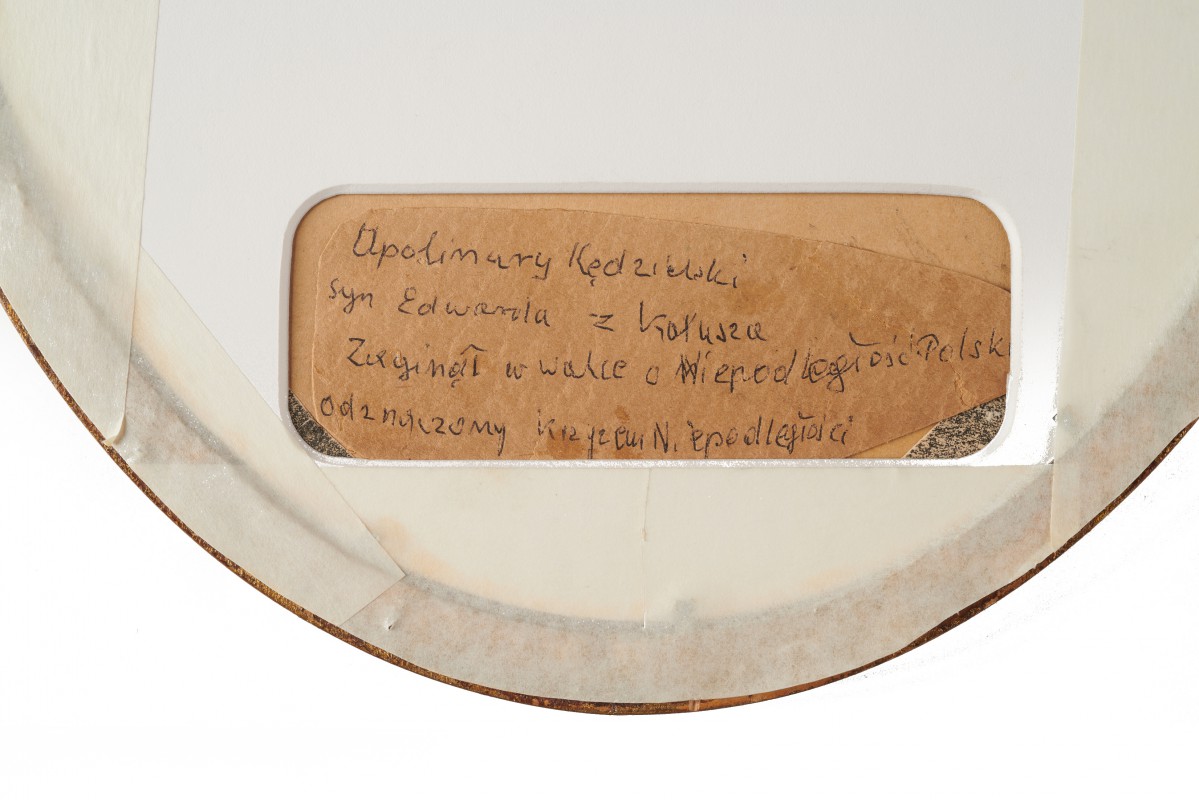 Apolinary Kędzielski
syn Edwarda z Kałusza
Zaginął w walce o Niepodległość Polski
odznaczony Krzyżem Niepodległości